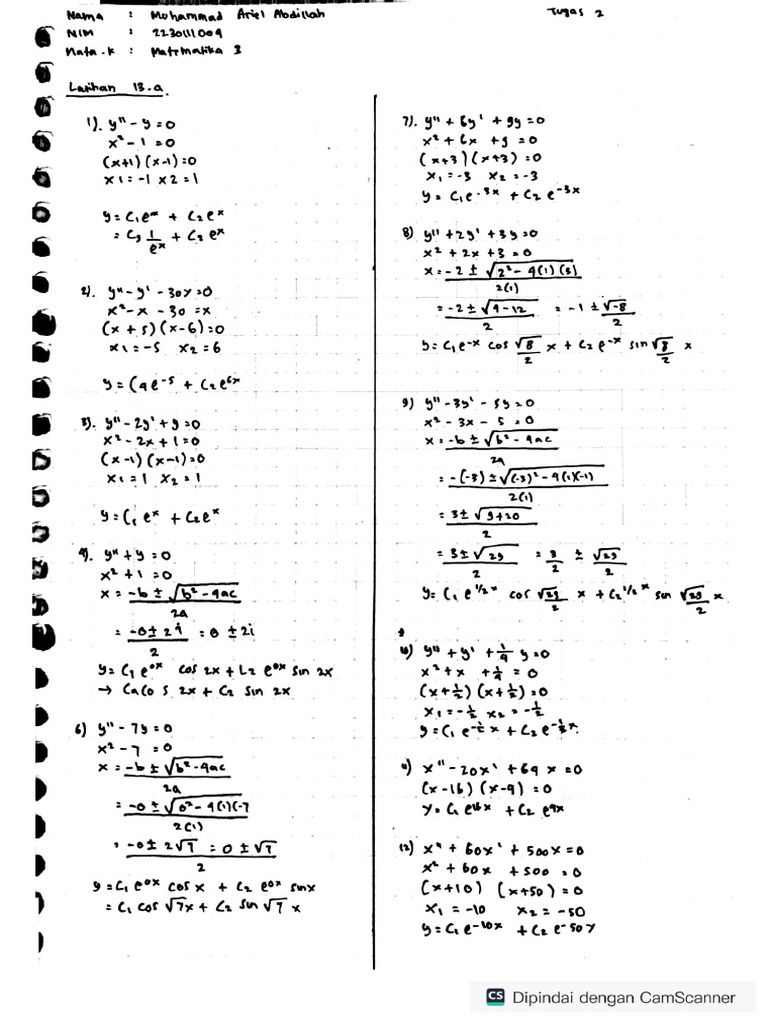 Nama : Muhammad Ariel Abdillah
Tugas 2
NIM : 2230111009
Mata.k : Matematika 3
Latihan 13.a.
1). y'' - y = 0
x² - 1 = 0
(x+1) (x-1) = 0
x1 = -1 x2 = 1
y = C₁eˣ + C₂eˣ
= C₁ 1/eˣ + C₂eˣ
2). y'' - y' - 30y = 0
x² - x - 30 = x
(x + 5) (x - 6) = 0
x1 = -5 x₂ = 6
y = C e⁻⁵ + C₂e⁶ˣ
3). y'' - 2y' + y = 0
x² - 2x + 1 = 0
(x-1) (x-1) = 0
x1 = 1 x₂ = 1
y = C₁ eˣ + C₂eˣ
4). y'' + y = 0
x² + 1 = 0
x = -b ± √b² - 4ac / 2a
= -0 ± 2i / 2 = 0 ± 2i
y = C₁ e⁰ˣ cos 2x + C₂ e⁰ˣ sin 2x
→ Ca Cos 2x + C₂ sin 2x
6) y'' - 7y = 0
x² - 7 = 0
x = -b ± √b² - 4ac / 2a
= -0 ± √0² - 4(1)(-7 / 2(1)
= -0 ± 2√7 / 2 = 0 ± √7
y = C₁ e⁰ˣ cos x + C₂ e⁰ˣ sin x
= C₁ cos √7 x + C₂ sin √7 x
7). y'' + 6y' + 9y = 0
x² + 6x + 9 = 0
(x+3) (x+3) = 0
x₁ = -3 x₂ = -3
y = C₁e⁻³ˣ + C₂ e⁻³ˣ
8) y'' + 2y' + 3y = 0
x² + 2x + 3 = 0
x = -2 ± √2² - 4(1)(3) / 2(1)
= -2 ± √4 - 12 / 2 = -1 ± √-8 / 2
y = C₁e⁻ˣ cos √8/2 x + C₂ e⁻ˣ sin √8/2 x
9) y'' - 3y' - 5y = 0
x² - 3x - 5 = 0
x = -b ± √b² - 4ac / 2a
= -(-3) ± √(-3)² - 4(1)(-1) / 2(1)
= 3 ± √9+20 / 2
= 3 ± √29 / 2 = 3/2 ± √29/2
y = C₁ e^1/2 x cos √29/2 x + C₂^1/2 x sin √29/2 x
10) y'' + y' + 1/4 y = 0
x² + x + 1/4 = 0
(x+½) (x+½) = 0
x₁ = -½ x₂ = -½
y = C₁ e^-½ x + C₂ e^-½ x
11) x'' - 20x' + 64 x = 0
(x-16) (x-4) = 0
y = C₁ e¹⁶ˣ + C₂ e⁴ˣ
12) x'' + 60x' + 500x = 0
x² + 60x + 500 = 0
(x+10) (x+50) = 0
x₁ = -10 x₂ = -50
y = C₁ e⁻¹⁰ˣ + C₂ e⁻⁵⁰ʸ
CS Dipindai dengan CamScanner